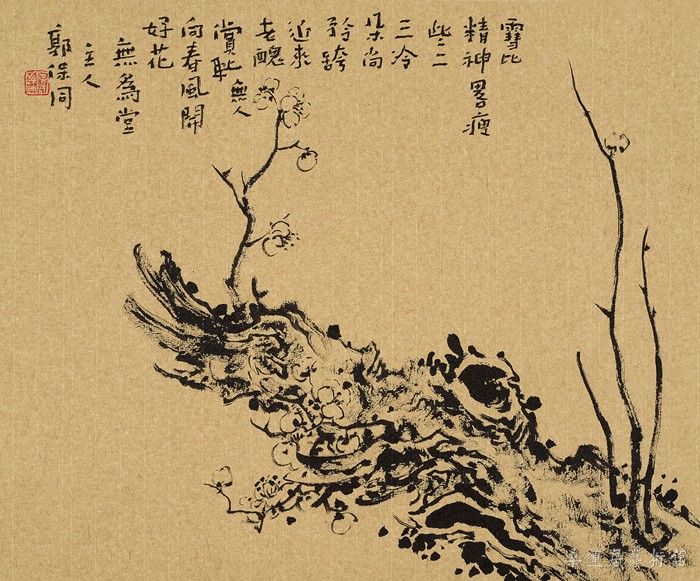 雪比
精神畧瘦
些二
三冷
朵尚
矜誇
近來
老醜
無人
賞耻
向春風開
好花
無為堂
主人
郭保同
桑蓮居藝術館